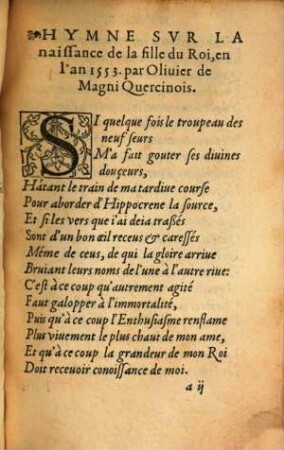 HYMNE SVR LA
naissance de la fille du Roi, en
l'an 1553. par Oliuier de
Magni Quercinois.
SI quelque fois le troupeau des
neuf seurs
M'a fait gouter ses diuines
douçeurs,
Hâtant le train de ma tardiue course
Pour aborder d'Hippocrene la source,
Et si les vers que i'ai deia trassés
Sont d'un bon œil receus & caressés
Méme de ceus, de qui la gloire arriue
Bruiant leurs noms de l'une à l'autre riue:
C'est à ce coup qu'autrement agité
Faut galopper à l'immortalité,
Puis qu'à ce coup l'Enthusiasme renflame
Plus viuement le plus chaut de mon ame,
Et qu'à ce coup la grandeur de mon Roi
Doit receuoir conoissance de moi.
a ij